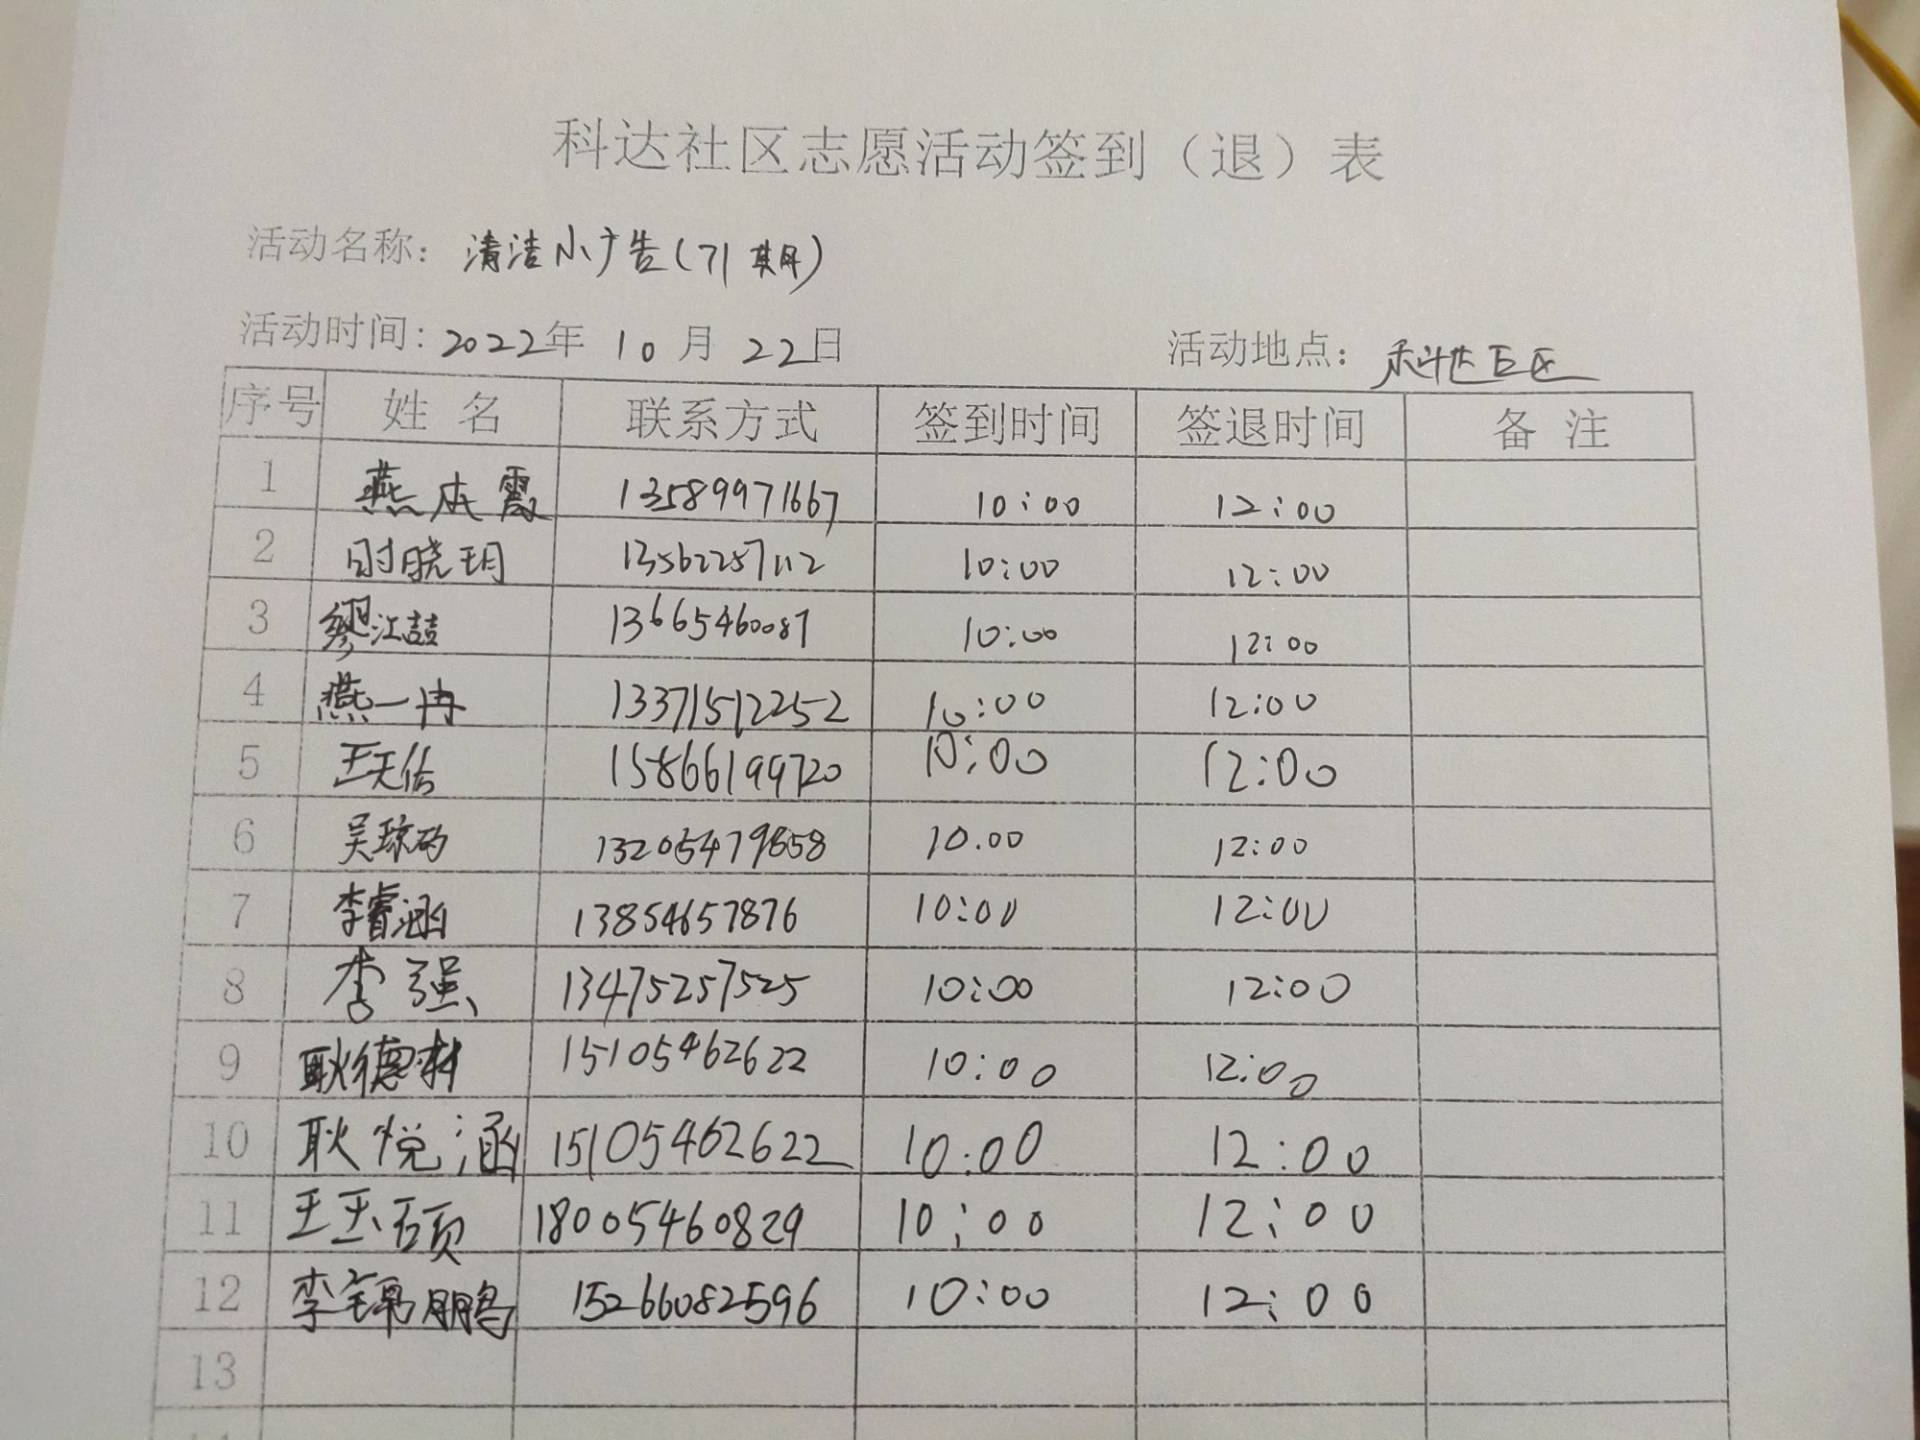 科达社区志愿活动签到（退）表
活动名称：清洁小广告(71期)
活动时间：2022年 10月 22日 活动地点：科达E区
序号 姓 名 联系方式 签到时间 签退时间 备 注
1 燕成霞 13589971667 10:00 12:00
2 时晓玥 13562257112 10:00 12:00
3 缪江喆 13665460087 10:00 12:00
4 燕一冉 13371512252 10:00 12:00
5 王天佑 15866199720 10:00 12:00
6 吴琼 13205479858 10.00 12:00
7 李睿涵 13854657876 10:00 12:00
8 李强 13475257525 10:00 12:00
9 耿德 15105462622 10:00 12:00
10 耿悦涵 15105462622 10:00 12:00
11 王玉硕 18005460829 10:00 12:00
12 李锦鹏 15266082596 10:00 12:00
13